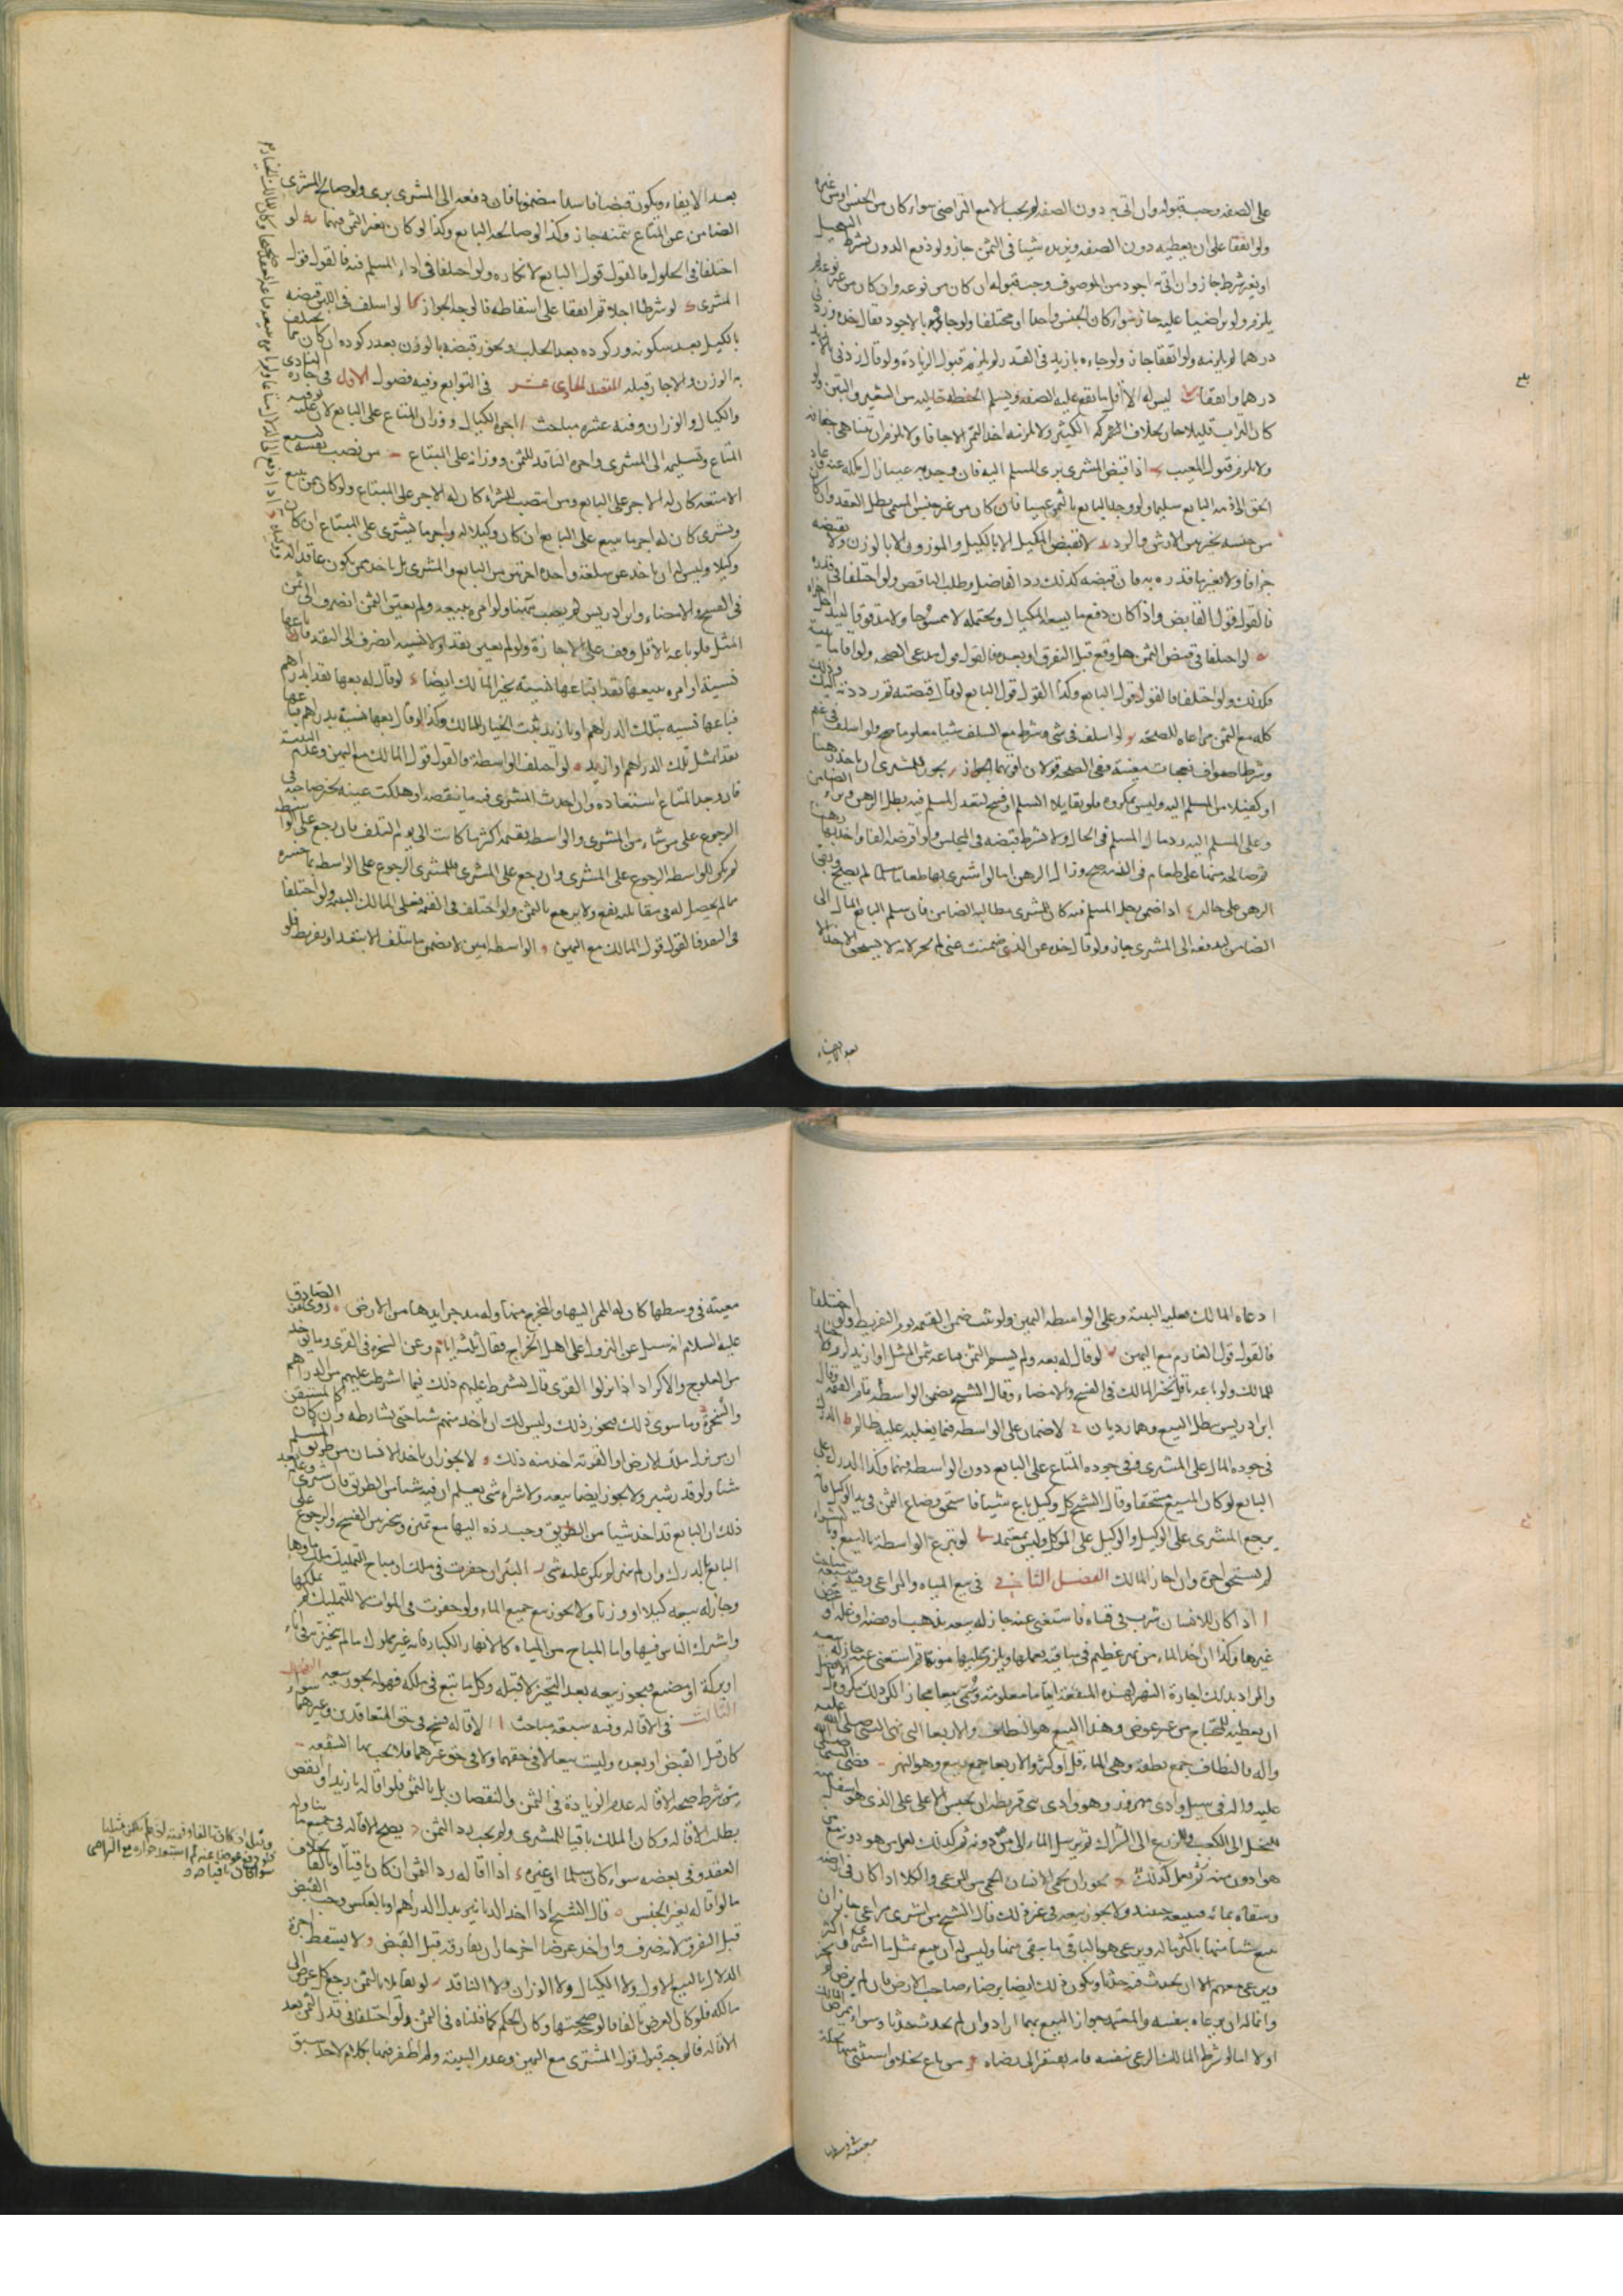 على الصفة وجب قبوله وان اتى به دون الصفة لم يجب الا مع التراضي سواء كان من الجنس او من غيره
ولو اتفقا على ان يعطيه دون الصفة ويزيده شيئا في الثمن جاز ولو دفع الدون بشرط التعجيل
او بغير شرط جاز وان اتى به اجود من الموصوف وجب قبوله ان كان من نوعه وان كان من غير نوعه لم
يلزم ولو تراضيا عليه جاز سواء كان الجنس واحدا او مختلفا ولو جاءه بالاجود فقال خذه وزدني
درهما لم يلزمه ولو اتفقا جاز ولو جاءه بازيد في القدر لم يلزمه قبول الزيادة ولو قال زدني
درهما واتفقا ليس له الا اقل ما يقع عليه الصفة ويسلم الحنطة خالية من الشعير والتبن ولو
كان التراب قليلا جاز بخلاف الكثير ولا يلزمه اخذ التمر الا جافا ولا يلزم ان يتناهى جفافه
ولا يلزم قبول المعيب اذا قبض المشتري برئ المسلم اليه فان وجد به عيبا زال ملكه عنه وعاد
الحق الى ذمة البايع سليما ولو وجد البايع بالثمن عيبا فان كان من غير جنس المسمى بطل العقد وان كان
من جنسه تخير بين الارش والرد لا يقبض المكيل الا بالكيل والموزون الا بالوزن ولا يقبضه
جزافا ولا بغير ما قدره به فان قبضه كذلك رد الفاضل وطلب الناقص ولو اختلفا في قدره
فالقول قول القابض واذا كال دفع ما يسعه المكيال ويحتمله لا ممسوحا ولا مدقوقا
لو اختلفا في قبض الثمن هل وقع قبل التفرق او بعده فالقول قول مدعي الصحة ولو اقاما بينة
فكذلك ولو اختلفا فالقول قول البايع وكذا القول قول البايع لو قال قبضته ثم رددته اليك
كله مع الثمن مراعاة للصحة لو اسلف في شيء وشرط مع السلف شيئا معلوما صح ولو اسلف في غنم
وشرط اصواف نعجات معينة ففي الصحة قولان اقربهما الجواز يجوز للمشتري ان ياخذ رهنا
او كفيلا من المسلم اليه وليس بمكروه فلو تقايلا السلم او فسخ لتعذر المسلم فيه بطل الرهن وبرئ الضامن
وعلى المسلم اليه رد مال المسلم في الحال ولا يشترط قبضه في المجلس ولو اقرضه الفا واخذ بها رهنا
ثم صالحه منها على طعام في الذمة صح وزال الرهن اما لو اشترى بها طعاما سلما لم يصح وبقي
الرهن على حاله اذا ضمن رجل المسلم فيه كان للمشتري مطالبة الضامن فان سلم البايع المال الى
الضامن ليدفعه الى المشتري جاز ولو قال خذه عن الذي ضمنت عني لم يجز لانه لا يستحق الاخذ الا
بعد الايفاء
بعد الايفاء ويكون قبضا فاسدا مضمونا فان دفعه الى المشتري برئ ولو صالح المشتري
الضامن عن المتاع بثمنه جاز وكذا لو صالحه البايع وكذا لو كان بغير الثمن فيهما لو
اختلفا في الحلول فالقول قول البايع لانكاره ولو اختلفا في اداء المسلم فيه فالقول قول
المشتري لو شرطا اجلا ثم اتفقا على اسقاطه فالوجه الجواز لو اسلف في اللبن قبضه
بالكيل بعد سكونه وركوده بعد الحلب ويجوز قبضه بالوزن بعد ركوده ان كان مما يختلف
به الوزن والا جاز قبله المقصد الحادي عشر في التوابع وفيه فصول الاول في اجارة المنادي
والكيال والوزان وفيه عشرة مباحث ا اجرة الكيال ووزان المتاع على البايع لان عليه توفية
المتاع وتسليمه الى المشتري واجرة الناقد للثمن ووزانه على المبتاع ب من نصب نفسه لبيع
الامتعة كان له الاجر على البايع ومن انتصب للشراء كان له الاجر على المبتاع ولو كان ممن يبيع
ويشتري كان له اجر ما يبيع على البايع ان كان وكيلا له واجر ما يشتري على المبتاع ان كان
وكيلا وليس له ان ياخذ عن سلعة واحدة اجرتين من البايع والمشتري بل ياخذ ممن يكون عاقدا له
في الفسخ والامضاء وابن ادريس لم يصب ولو امره ببيعه ولم يعين الثمن انصرف الى ثمن
المثل فلو باعه بالاقل وقف على الاجازة ولو لم يعين نقدا ولا نسية انصرف الى النقد فان باعها
نسية او امره ببيعها نقدا فباعها نسية تخير المالك ايضا لو قال له بعها نقدا بدراهم
فباعها نسية بتلك الدراهم او بازيد ثبت الخيار للمالك وكذا لو قال بعها نسية بدراهم فباعها
نقدا بمثل تلك الدراهم او ازيد لو اختلف الواسطة فالقول قول المالك مع اليمين وعدم البينة
فان وجد المتاع استعاده وان احدث المشتري فيه ما ينقصه او هلكت عينه تخير صاحبه في
الرجوع على من شاء من المشتري والواسطة بقيمته اكثر ما كانت الى يوم التلف فان رجع على الواسطة
لم يكن للواسطة الرجوع على المشتري وان رجع على المشتري فللمشتري الرجوع على الواسطة بما خسره
مما لم يحصل له في مقابلته نفع ولا يرجع بالثمن ولو اختلف في القيمة فعلى المالك البينة ولو اختلفا
في النقد فالقول قول المالك مع اليمين و الواسطة امين لا يضمن ما يتلف الا بتعد او تفريط فلو
ادعاه المالك فعليه البينة وعلى الواسطة اليمين ولو ثبت ضمن القيمة يوم التفريط ولو اختلفا
فالقول قول الغارم مع اليمين لو قال له بعه ولم يسم الثمن فباعه بثمن المثل او ازيد لزم
للمالك ولو باعه باقل تخير المالك في الفسخ والامضاء وقال الشيخ يضمن الواسطة تمام القيمة وقال
ابن ادريس يبطل البيع وهما رديان لا ضمان على الواسطة فيما يغلبه عليه ظالم ط الدرك
في جودة المال على المشتري وفي جودة المتاع على البايع دون الواسطة فيهما وكذا الدرك على
البايع لو كان المبيع مستحقا وقال الشيخ كل وكيل باع شيئا فاستحق وضاع الثمن في يد الوكيل فان
يرجع المشتري على الوكيل والوكيل على الموكل وليس بمعتمد لو تبرع الواسطة بالبيع او
لم يستحق اجرة وان اجاز المالك الفصل الثاني في بيع المياه والمراعي وفيه سبعة مباحث
ا اذا كان للانسان شرب في قناة فاستغنى عنه جاز له بيعه بذهب او فضة او غلة او
غيرها وكذا ان اخذ الماء من نهر عظيم في ساقية يعملها ويلزم عليها مؤنة ثم استغنى عنه جاز له بيعه
والمراد بذلك اجارة النهر لهذه المنفعة اياما معلومة وسمي بيعا مجازا لكن ذلك مكروه والافضل
ان يعطيه للمحتاج من غير عوض وهذا البيع هو النطاف والاربعا التي نهى النبي صلى الله عليه
وآله فالنطاف جمع نطفة وهي الماء قل او كثر والاربعا جمع ربيع وهو النهر قضى النبي صلى الله
عليه وآله في سيل وادي مهزور وهو وادي بني قريظة ان يحبس الاعلى على الذي هو اسفل منه
للنخل الى الكعب وللزرع الى الشراك ثم يرسل الماء الى من دونه ثم كذلك يعمل من هو دونه مع من
هو ادون منه ثم يعمل كذلك يجوز ان يحمي الانسان الحمى من المرعى والكلا اذا كان في ارضه
وسقاه بمائه فيبيعه حينئذ ولا يجوز بيعه في غير ذلك قال الشيخ من اشترى مراعي جاز ان
يبيع شيئا منها باكثر ماله ويرعى هو بالباقي ما بقي منها وليس له ان يبيع بمثل ما اشترى او اكثر
ويرعى معهم الا ان يحدث فيه حدثا ويكون ذلك ايضا برضاء صاحب الارض فان لم يرض لم يجز
وانما له ان يرعاه بنفسه والمعتمد جواز البيع بهما اراد وان لم يحدث حدثا وسواء رضي المالك
اولا اما لو شرط المالك الرعي بنفسه فانه يفتقر الى رضاه و من باع نخلا واستثنى منها نخلة
معينة في وسطها
معينة في وسطها كان له الممر اليها والمخرج منها وله مدى جرايدها من الارض روي عن الصادق
عليه السلام انه سئل عن النزول على اهل الخراج فقال ثلثة ايام وعن السخرة في القرى وما يؤخذ
من العلوج والاكراد اذا نزلوا القرى قال تشترط عليهم ذلك فما اشترطت عليهم من الدراهم
والسخرة وما سوى ذلك فيجوز ذلك وليس لك ان تاخذ منهم شيئا حتى تشارطهم وان كان كالمستيقن
ان من نزل تلك الارض او القرية اخذ منه ذلك لا يجوز ان ياخذ الانسان من طريق المسلمين
شيئا ولو قدر شبر ولا يجوز ايضا بيعه ولا شراء شيء يعلم ان فيه شيئا من الطريق فان اشترى وعلم بعد
ذلك ان البايع قد اخذ شيئا من الطريق وجب رده اليها مع تميزه وتخير بين الفسخ والرجوع على
البايع بالدرك وان لم يتميز لم يكن عليه شيء البئر ان حفرت في ملك او مباح للتمليك ملك ماءها
وجاز له بيعه كيلا او وزنا ولا يجوز بيع جميع الماء ولو حفرت في الموات لا للتمليك لم يملكها
واشترك الناس فيها واما المباح من المياه كالانهار الكبار فانه غير مملوك ما لم يحيزه في اناء
او بركة او مصنع فيجوز بيعه بعد التحيز لا قبله وكل ما نبع في ملكه فهو له يجوز بيعه الفصل
الثالث في الاقالة وفيه سبعة مباحث ا الاقالة فسخ في حق المتعاقدين وغيرهما سواء
كان قبل القبض او بعده وليست بيعا لا في حقهما ولا في حق غيرهما فلا يجب بها الشفعة ب
من شرط صحة الاقالة عدم الزيادة في الثمن والنقصان بل بالثمن فلو اقاله بازيد او انقص
بطلت الاقالة وكان الملك باقيا للمشتري ولم يجب رد الثمن يصح الاقالة في جميع ما تناوله
العقد وفي بعضه سواء كان سلما او غيره اذا اقاله رد الثمن ان كان باقيا او تالفا بخلاف
ما لو اقاله بغير الجنس قال الشيخ اذا اخذ الدنانير بدل الدراهم او بالعكس وجب القبض
قبل التفرق لانه صرف وان اخذ عرضا اخر جاز ان يفارقه قبل القبض و لا يسقط اجرة
الدلال بالبيع الاول ولا الكيال ولا الوزان ولا الناقد لو تقايلا بالثمن رجع كل عوض الى
مالكه فلو كان العرض تالفا فالوجه صحتها وكان الحكم كما قلناه في الثمن ولو اختلفا في قدر الثمن بعد
الاقالة فالوجه قبول قول المشتري مع اليمين وعدم البينة ولم اظفر فيها بكلام لاحد سبق